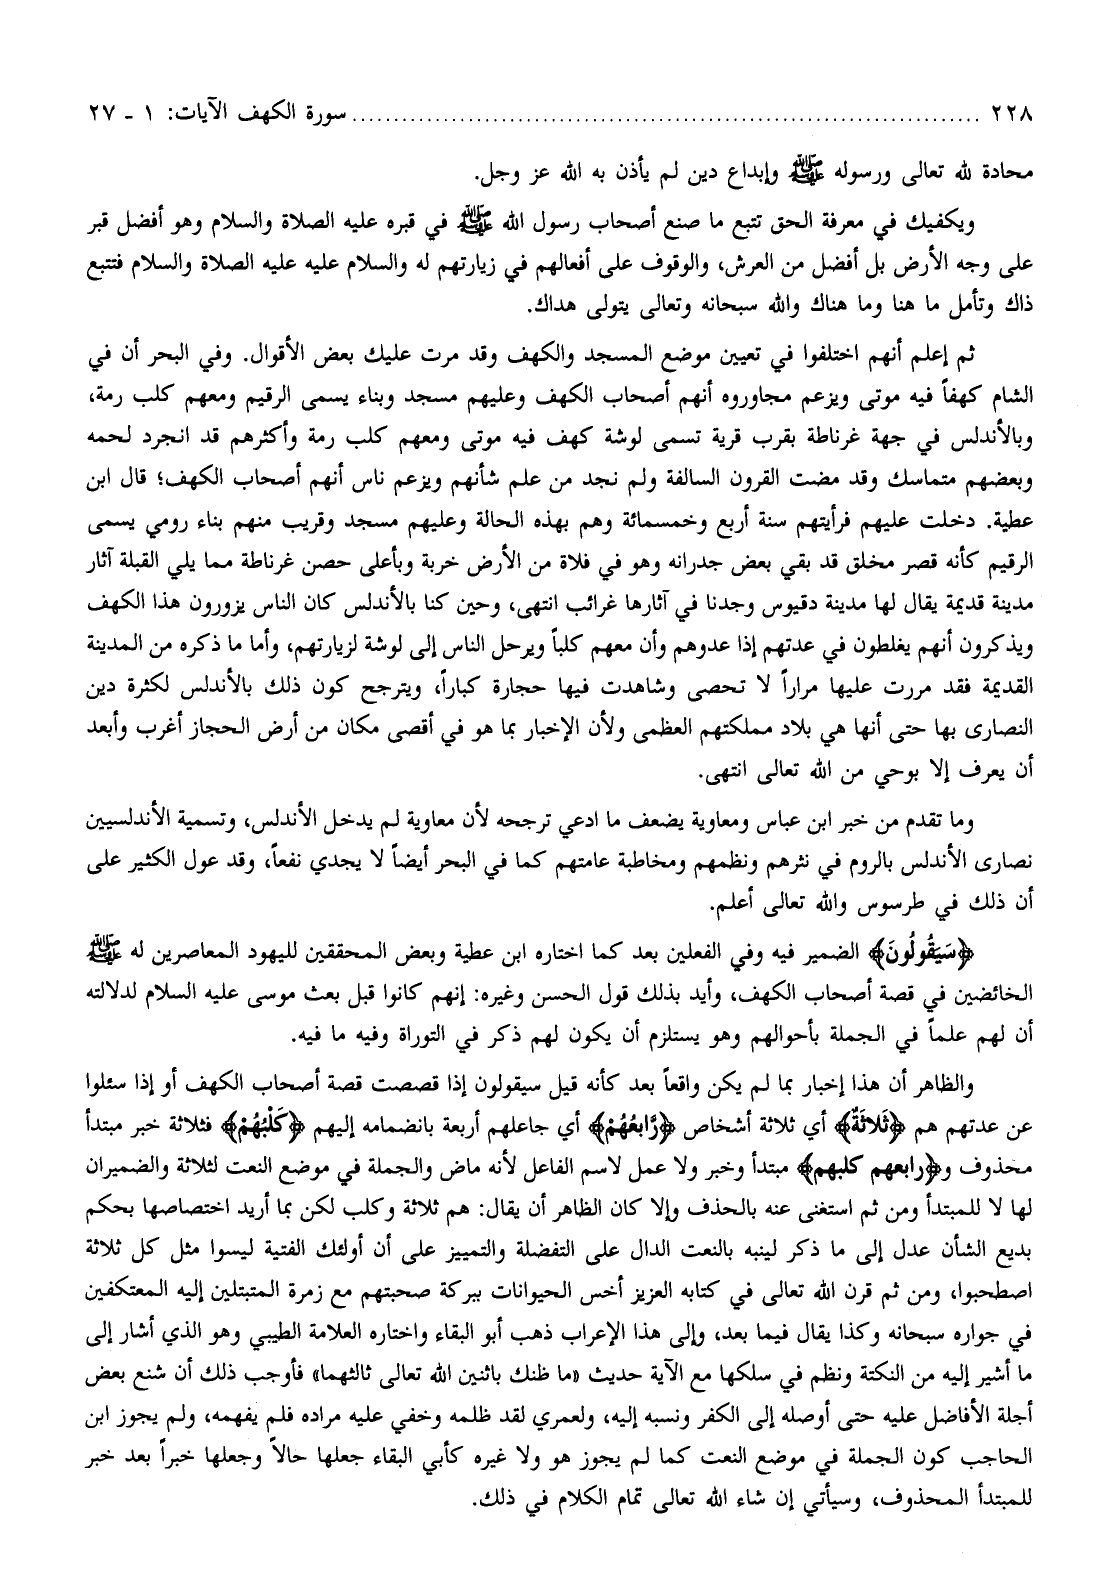 ٢٢٨ ........................................................................... سورة الكهف الآيات: ١ - ٢٧
محادة لله تعالى ورسوله ﷺ وإبداع دين لم يأذن به الله عز وجل.
ويكفيك في معرفة الحق تتبع ما صنع أصحاب رسول الله ﷺ في قبره عليه الصلاة والسلام وهو أفضل قبر
على وجه الأرض بل أفضل من العرش، والوقوف على أفعالهم في زيارتهم له والسلام عليه عليه الصلاة والسلام فتتبع
ذاك وتأمل ما هنا وما هناك والله سبحانه وتعالى يتولى هداك.
ثم إعلم أنهم اختلفوا في تعيين موضع المسجد والكهف وقد مرت عليك بعض الأقوال. وفي البحر أن في
الشام كهفاً فيه موتى ويزعم مجاوروه أنهم أصحاب الكهف وعليهم مسجد وبناء يسمى الرقيم ومعهم كلب رمة،
وبالأندلس في جهة غرناطة بقرب قرية تسمى لوشة كهف فيه موتى ومعهم كلب رمة وأكثرهم قد انجرد لحمه
وبعضهم متماسك وقد مضت القرون السالفة ولم نجد من علم شأنهم ويزعم ناس أنهم أصحاب الكهف؛ قال ابن
عطية. دخلت عليهم فرأيتهم سنة أربع وخمسمائة وهم بهذه الحالة وعليهم مسجد وقريب منهم بناء رومي يسمى
الرقيم كأنه قصر مخلق قد بقي بعض جدرانه وهو في فلاة من الأرض خربة وبأعلى حصن غرناطة مما يلي القبلة آثار
مدينة قديمة يقال لها مدينة دقيوس وجدنا في آثارها غرائب انتهى، وحين كنا بالأندلس كان الناس يزورون هذا الكهف
ويذكرون أنهم يغلطون في عدتهم إذا عدوهم وأن معهم كلباً ويرحل الناس إلى لوشة لزيارتهم، وأما ما ذكره من المدينة
القديمة فقد مررت عليها مراراً لا تحصى وشاهدت فيها حجارة كباراً، ويترجح كون ذلك بالأندلس لكثرة دين
النصارى بها حتى أنها هي بلاد مملكتهم العظمى ولأن الإخبار بما هو في أقصى مكان من أرض الحجاز أغرب وأبعد
أن يعرف إلا بوحي من الله تعالى انتهى.
وما تقدم من خبر ابن عباس ومعاوية يضعف ما ادعي ترجحه لأن معاوية لم يدخل الأندلس، وتسمية الأندلسيين
نصارى الأندلس بالروم في نثرهم ونظمهم ومخاطبة عامتهم كما في البحر أيضاً لا يجدي نفعاً، وقد عول الكثير على
أن ذلك في طرسوس والله تعالى أعلم.
﴿سَيَقُولُونَ﴾ الضمير فيه وفي الفعلين بعد كما اختاره ابن عطية وبعض المحققين لليهود المعاصرين له ﷺ
الخائضين في قصة أصحاب الكهف، وأيد بذلك قول الحسن وغيره: إنهم كانوا قبل بعث موسى عليه السلام لدلالته
أن لهم علماً في الجملة بأحوالهم وهو يستلزم أن يكون لهم ذكر في التوراة وفيه ما فيه.
والظاهر أن هذا إخبار بما لم يكن واقعاً بعد كأنه قيل سيقولون إذا قصصت قصة أصحاب الكهف أو إذا سئلوا
عن عدتهم هم ﴿ثَلَاثَةٌ﴾ أي ثلاثة أشخاص ﴿رَّابِعُهُمْ﴾ أي جاعلهم أربعة بانضمامه إليهم ﴿كَلْبُهُمْ﴾ فثلاثة خبر مبتدأ
محذوف و﴿رابعهم كلبهم﴾ مبتدأ وخبر ولا عمل لاسم الفاعل لأنه ماض والجملة في موضع النعت لثلاثة والضميران
لها لا للمبتدأ ومن ثم استغنى عنه بالحذف وإلا كان الظاهر أن يقال: هم ثلاثة وكلب لكن بما أريد اختصاصها بحكم
بديع الشأن عدل إلى ما ذكر لينبه بالنعت الدال على التفضلة والتمييز على أن أولئك الفتية ليسوا مثل كل ثلاثة
اصطحبوا، ومن ثم قرن الله تعالى في كتابه العزيز أخس الحيوانات ببركة صحبتهم مع زمرة المتبتلين إليه المعتكفين
في جواره سبحانه وكذا يقال فيما بعد، وإلى هذا الإعراب ذهب أبو البقاء واختاره العلامة الطيبي وهو الذي أشار إلى
ما أشير إليه من النكتة ونظم في سلكها مع الآية حديث «ما ظنك باثنين الله تعالى ثالثهما» فأوجب ذلك أن شنع بعض
أجلة الأفاضل عليه حتى أوصله إلى الكفر ونسبه إليه، ولعمري لقد ظلمه وخفي عليه مراده فلم يفهمه، ولم يجوز ابن
الحاجب كون الجملة في موضع النعت كما لم يجوز هو ولا غيره كأبي البقاء جعلها حالاً وجعلها خبراً بعد خبر
للمبتدأ المحذوف، وسيأتي إن شاء الله تعالى تمام الكلام في ذلك.